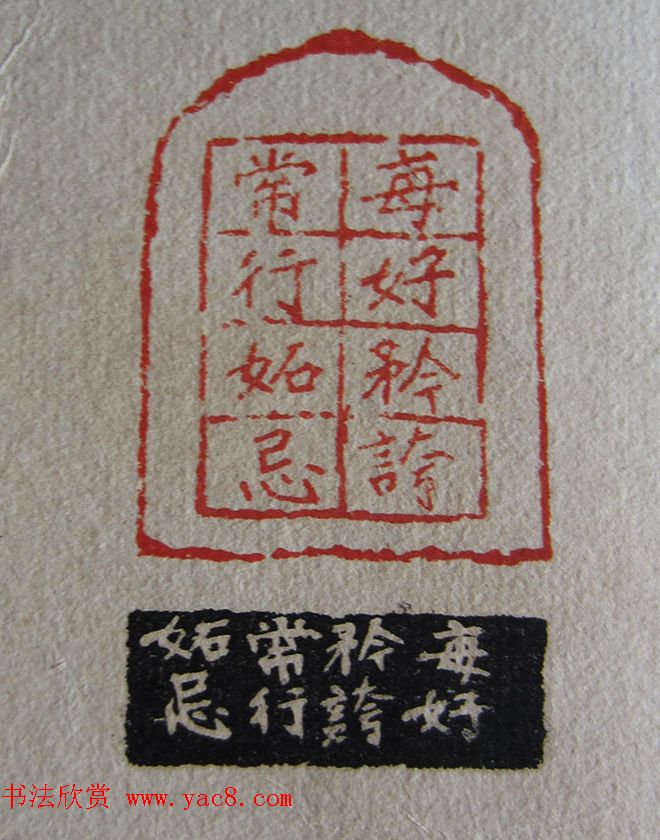 每好矜誇
常行妬忌
每好
矜誇
常行
妬忌
书法欣赏 www.yac8.com